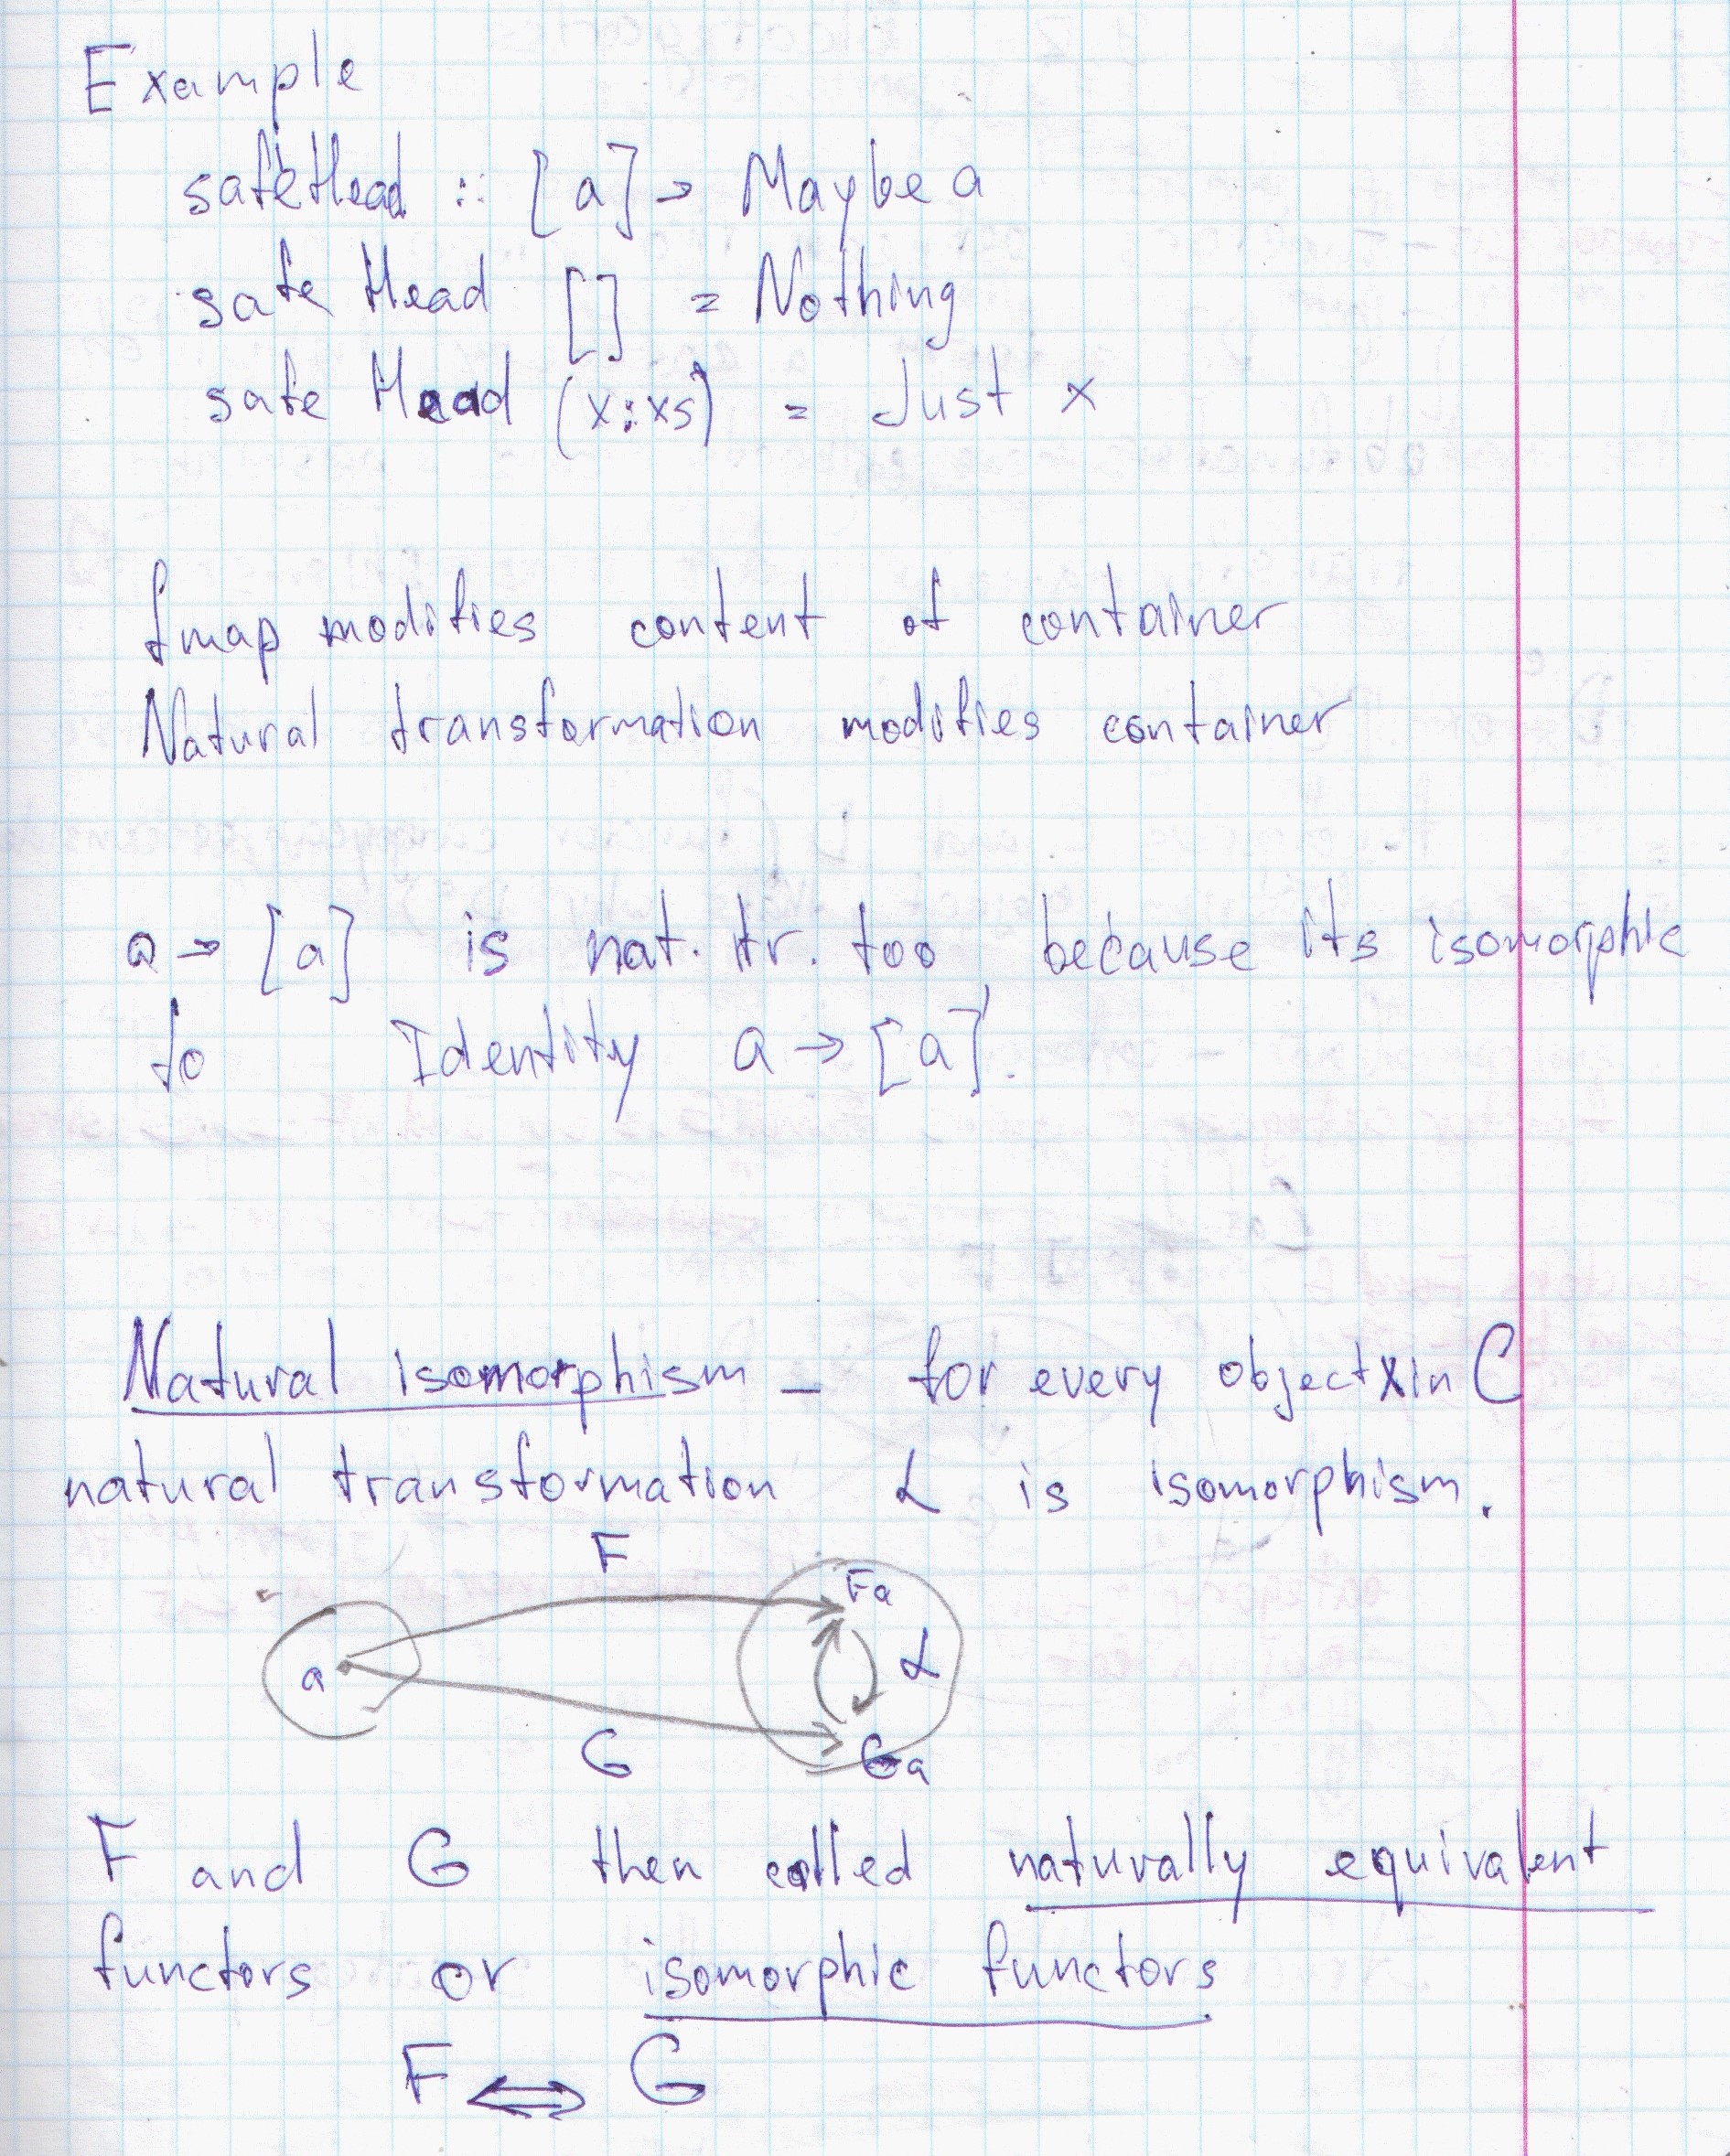 Example
safeHead :: [a] → Maybe a
safe Head [] = Nothing
safe Head (x:xs) = Just x
fmap modifies content of container
Natural transformation modifies container
a → [a] is nat. tr. too, because its isomorphic
to Identity a → [a].
Natural isomorphism – for every object x in C
natural transformation α is isomorphism.
F
Fa
a
α
G
Ga
F and G then called naturally equivalent
functors or isomorphic functors
F ⟺ G